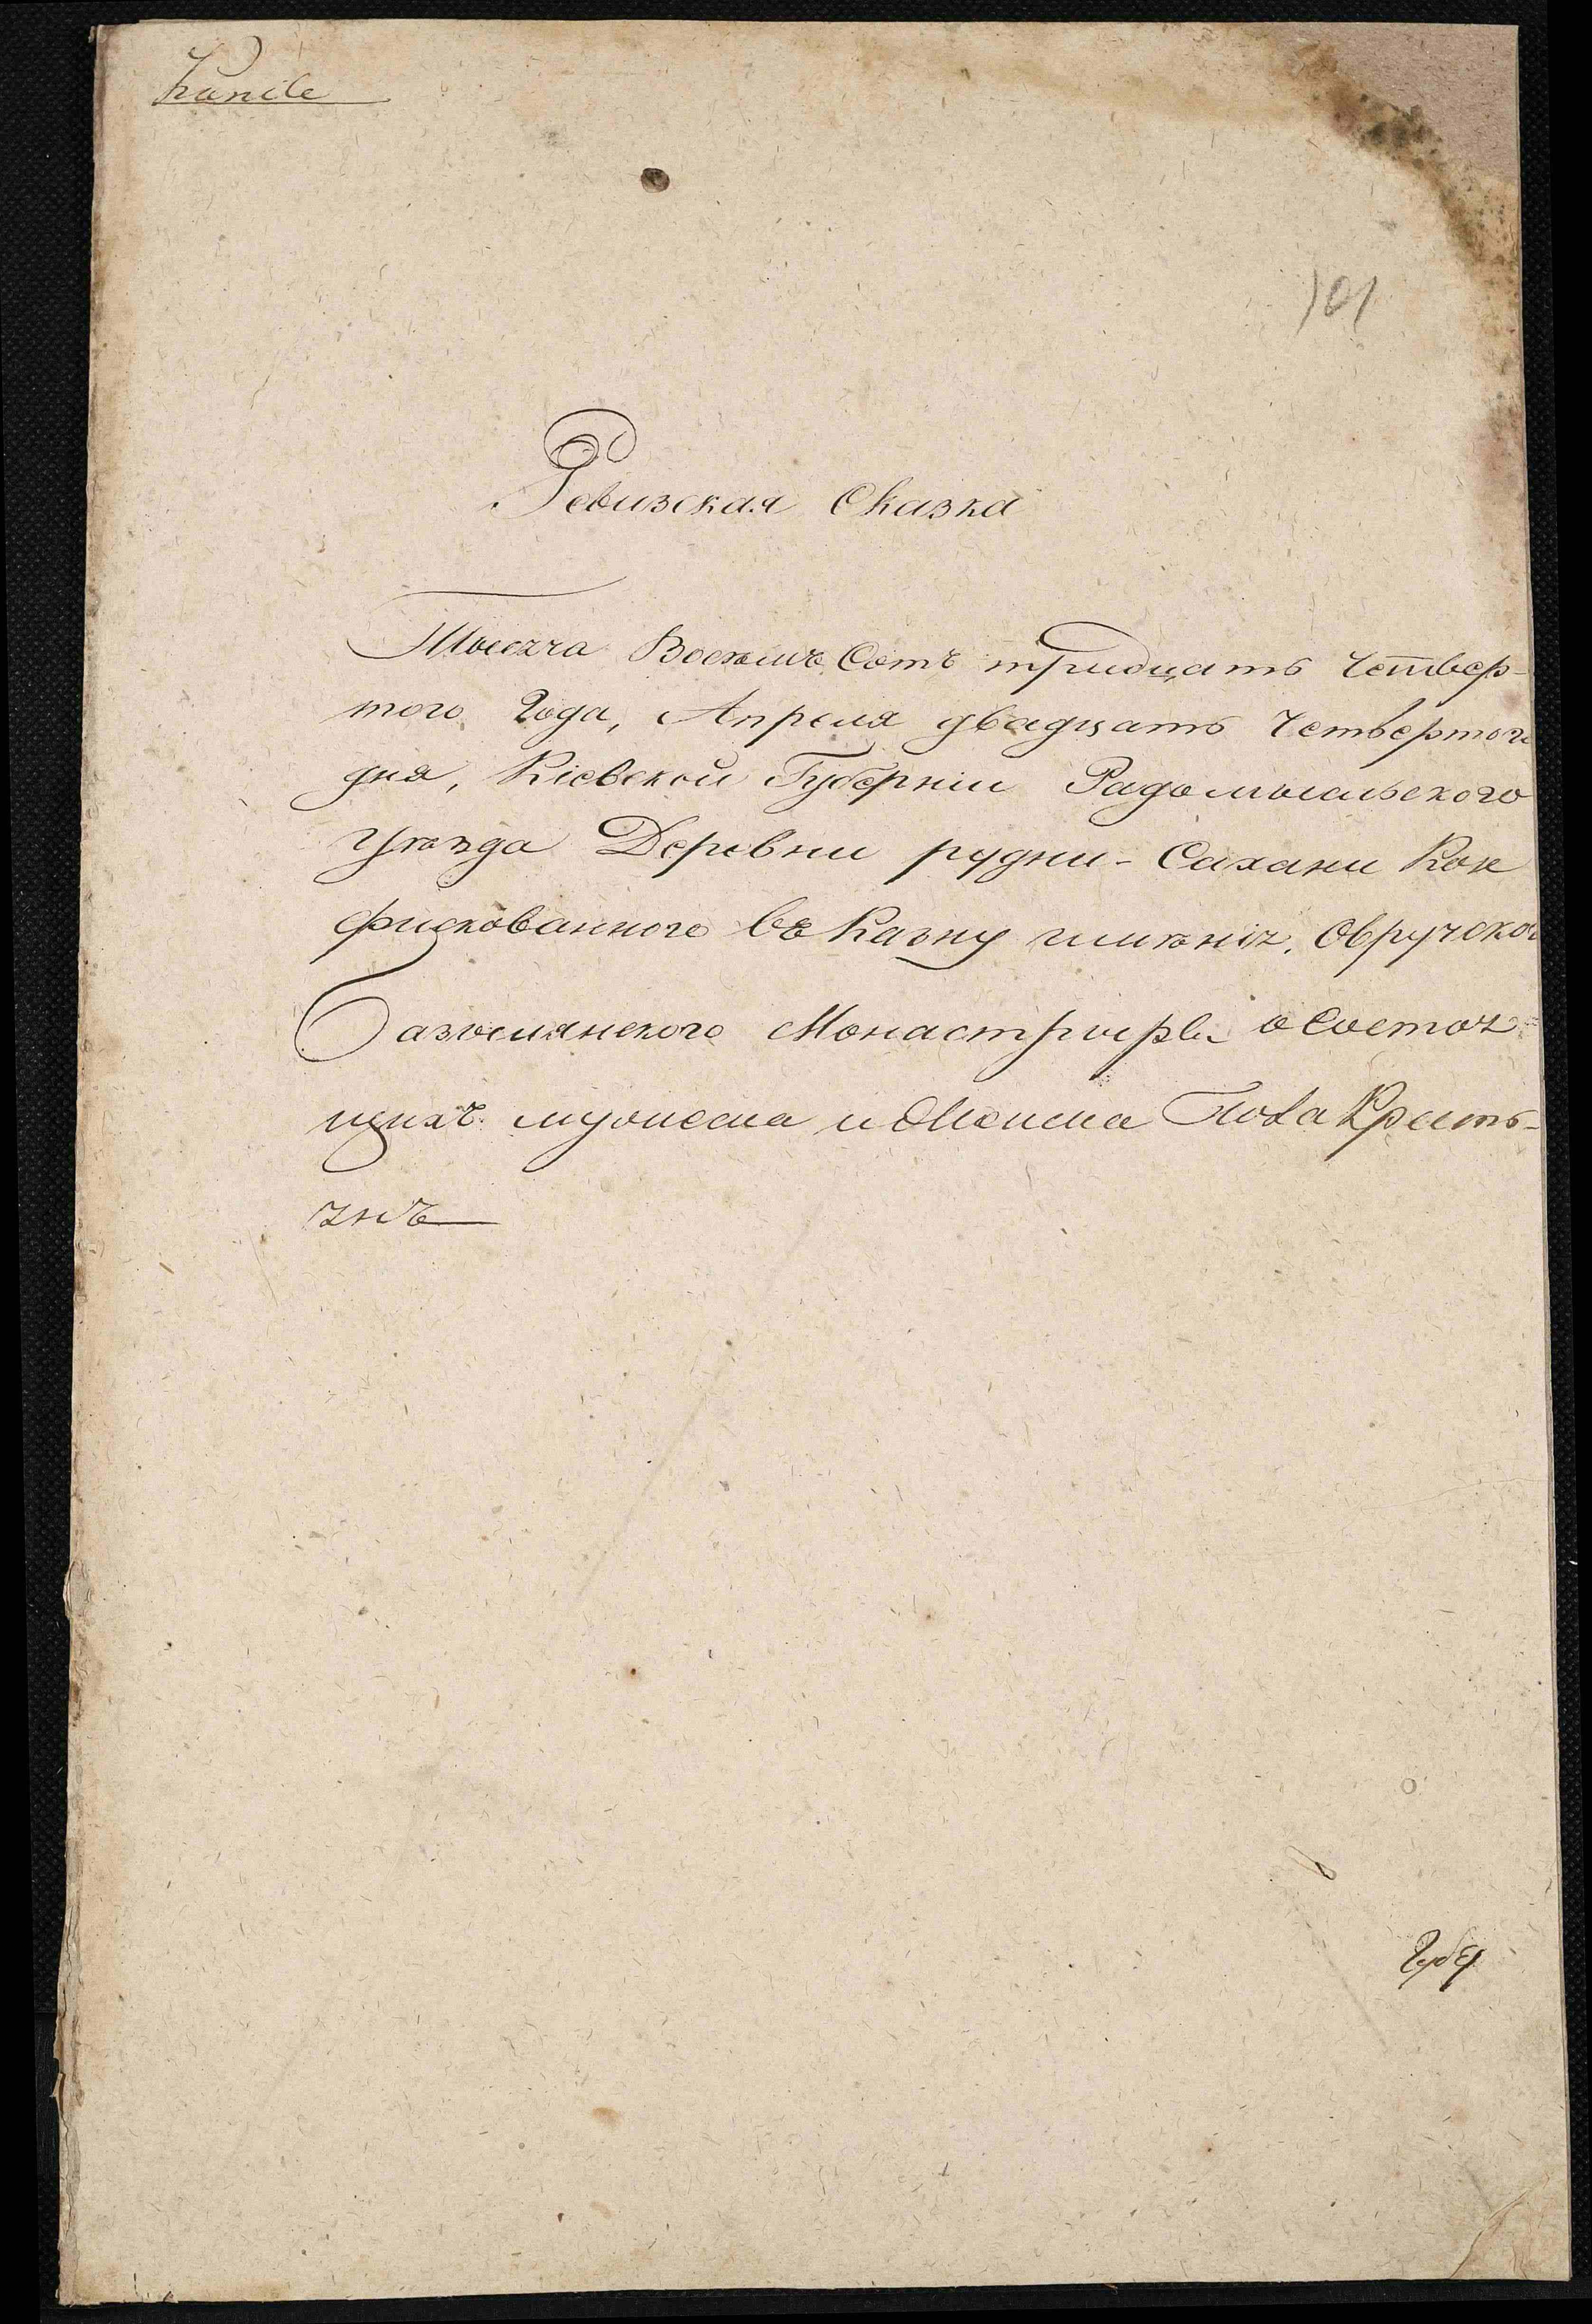 101
Ревизская Сказка
Тысяча Восемъ Сотъ тридцать Четвер-
того Года, Апреля двадцать Четвертого
дня, Кіевской Губерніи Радомысльского
уѣзда Деревни рудни-Сахани Кон
фискованного въ Казну имѣнія, Овручского
Базылянского Монастыря о Состоя=
щихъ мужеска и Женска Пола Кресть-
янъ